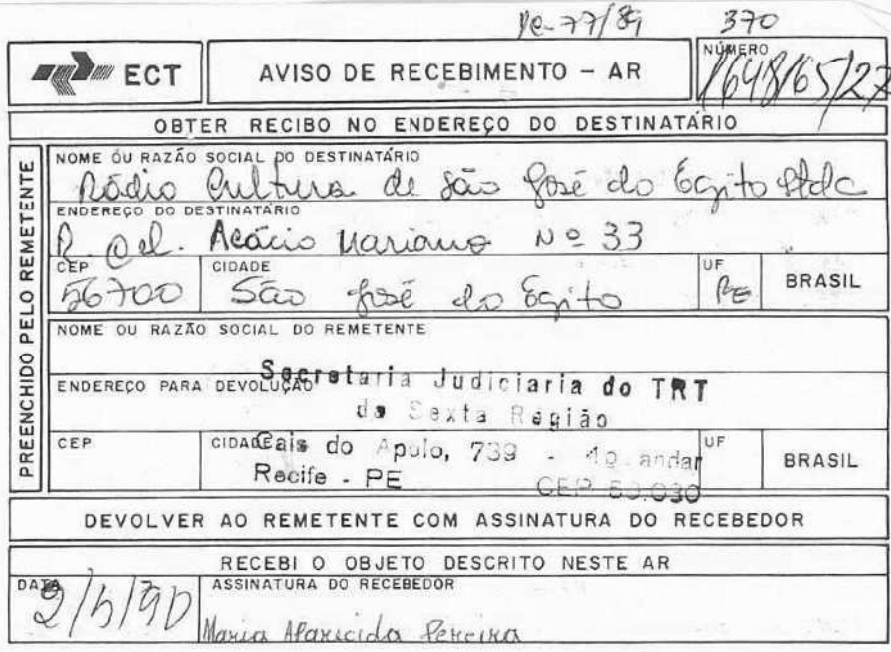 DC-77/89 370
ECT
AVISO DE RECEBIMENTO - AR
NÚMERO
1648165/27
OBTER RECIBO NO ENDEREÇO DO DESTINATÁRIO
PREENCHIDO PELO REMETENTE
NOME OU RAZÃO SOCIAL DO DESTINATÁRIO
Rádio Cultura de São José do Egito Ltda
ENDEREÇO DO DESTINATÁRIO
R. Cel. Acácio Mariano Nº 33
CEP CIDADE UF
56700 São José do Egito PE BRASIL
NOME OU RAZÃO SOCIAL DO REMETENTE
Secretaria Judiciaria do TRT
ENDEREÇO PARA DEVOLUÇÃO
da Sexta Região
CEP CIDADE UF
Cais do Apolo, 739 - 4o. andar
BRASIL
Recife - PE CEP 50.030
DEVOLVER AO REMETENTE COM ASSINATURA DO RECEBEDOR
RECEBI O OBJETO DESCRITO NESTE AR
DATA ASSINATURA DO RECEBEDOR
2/5/90 Maria Aparecida Pereira